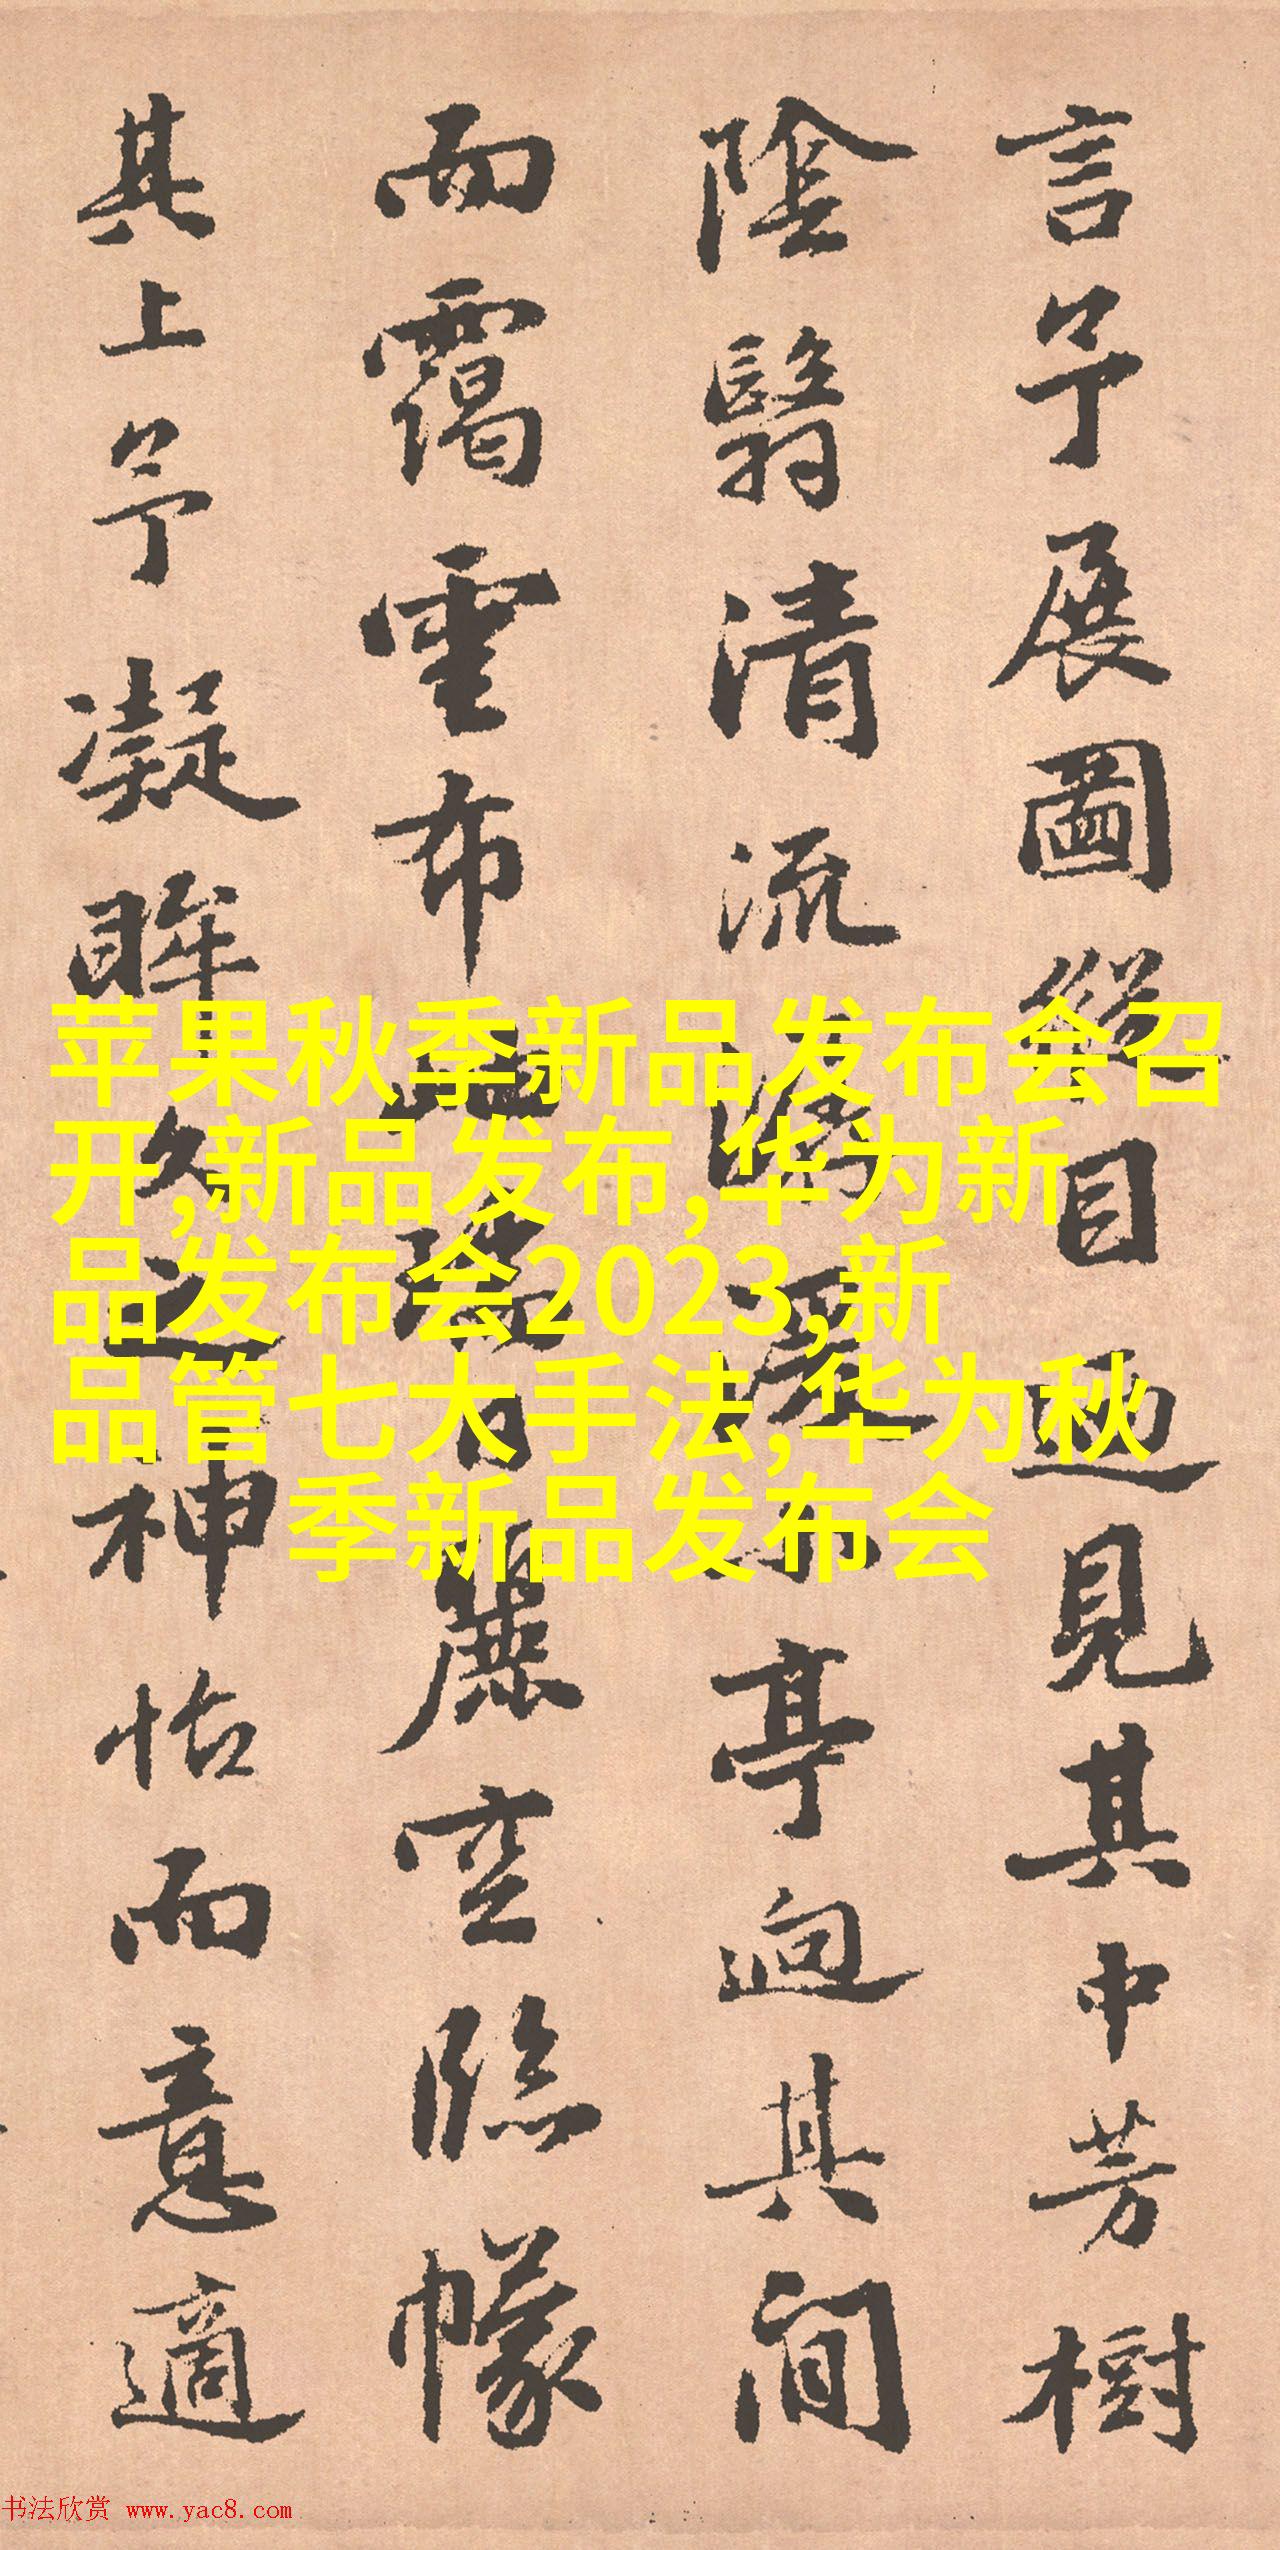 言予展圖縱目迺見其中芳樹
陰翳清流亭迥其間
而靄雲布麗空臨幪
其上予凝眸久之神怡而意適
苹果秋季新品发布会召
开,新品发布,华为新
品发布会2023,新
品管七大手法,华为秋
季新品发布会
书法欣赏 www.yac8.com